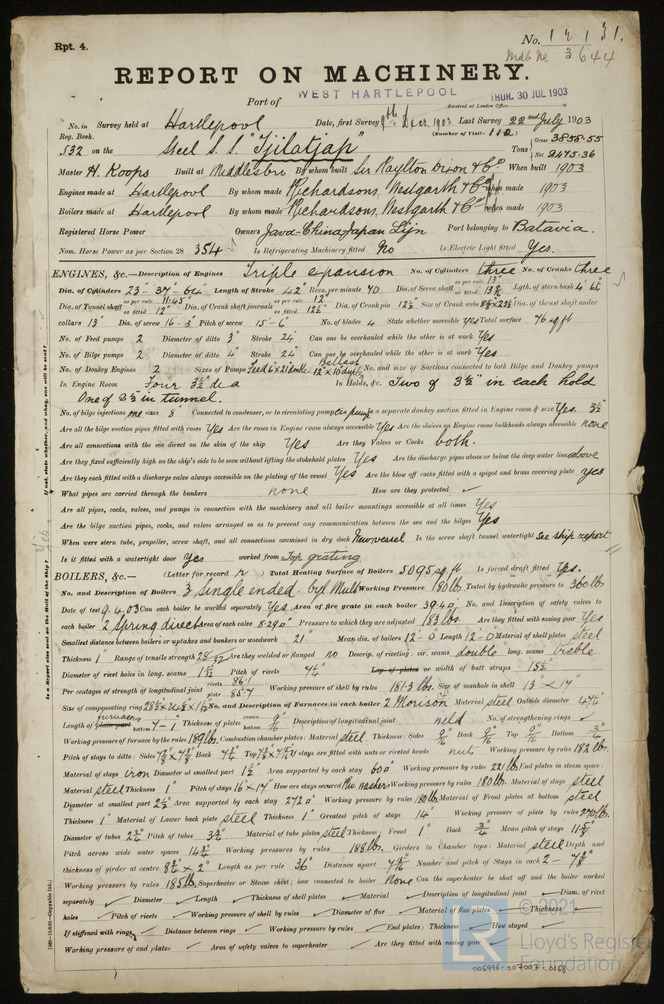 Rpt. 4.
No. 12131.
Mdb No 3644
REPORT ON MACHINERY.
Port of WEST HARTLEPOOL THUR. 30 JUL 1903
Received at London Office
No. in Survey held at Hartlepool Date, first Survey 9th Decr. 1902 Last Survey 22nd July 1903
Reg. Book. (Number of Visits 110
532 on the Steel S.S. "Tjilatjap" Tons { Gross 3858.55
Net 2475.36
Master H. Koops Built at Middlesbro By whom built Sir Raylton Dixon & Co. When built 1903
Engines made at Hartlepool By whom made Richardsons, Westgarth & Co when made 1903
Boilers made at Hartlepool By whom made Richardsons, Westgarth & Co when made 1903
Registered Horse Power Owners Java-China-Japan Lijn Port belonging to Batavia.
Nom. Horse Power as per Section 28 354 Is Refrigerating Machinery fitted No Is Electric Light fitted Yes.
ENGINES, &c.—Description of Engines Triple expansion No. of Cylinders three No. of Cranks three
Dia. of Cylinders 23" 37" 62" Length of Stroke 42" Revs. per minute 70 Dia. of Screw shaft as per rule 13" as fitted Lgth. of stern bush 4' 6½"
Dia. of Tunnel shaft as per rule 11.45" as fitted 12" Dia. of Crank shaft journals as per rule 12" as fitted 12½" Dia. of Crank pin 12½" Size of Crank webs Dia. of thrust shaft under
collars 13" Dia. of screw 16-3" Pitch of screw 15'-6" No. of blades 4 State whether moveable yes Total surface 76 sq ft
No. of Feed pumps 2 Diameter of ditto 3" Stroke 24" Can one be overhauled while the other is at work Yes
No. of Bilge pumps 2 Diameter of ditto 4" Stroke 24" Can one be overhauled while the other is at work Yes
No. of Donkey Engines 2 Sizes of Pumps Feed 6x21 double. Ballast 12"x10" duplex No. and size of Suctions connected to both Bilge and Donkey pumps
In Engine Room Four 3½" dia In Holds, &c. Two of 3½" in each hold
One of 3½" in tunnel.
No. of bilge injections one sizes 8" Connected to condenser, or to circulating pump cir pump Is a separate donkey suction fitted in Engine room & size Yes. 3½
Are all the bilge suction pipes fitted with roses Yes Are the roses in Engine room always accessible Yes Are the sluices on Engine room bulkheads always accessible none
Are all connections with the sea direct on the skin of the ship Yes Are they Valves or Cocks both.
Are they fixed sufficiently high on the ship's side to be seen without lifting the stokehold plates Yes Are the discharge pipes above or below the deep water line above
Are they each fitted with a discharge valve always accessible on the plating of the vessel Yes Are the blow off cocks fitted with a spigot and brass covering plate yes
What pipes are carried through the bunkers none How are they protected ✓
Are all pipes, cocks, valves, and pumps in connection with the machinery and all boiler mountings accessible at all times Yes
Are the bilge suction pipes, cocks, and valves arranged so as to prevent any communication between the sea and the bilges Yes
When were stern tube, propeller, screw shaft, and all connections examined in dry dock New vessel Is the screw shaft tunnel watertight See ship report
Is it fitted with a watertight door Yes worked from Top grating
BOILERS, &c.— (Letter for record r) Total Heating Surface of Boilers 5095 sq ft Is forced draft fitted Yes.
No. and Description of Boilers 3 single ended. cyl Mult Working Pressure 180 lb Tested by hydraulic pressure to 360 lb
Date of test 9.4.03 Can each boiler be worked separately Yes Area of fire grate in each boiler 39.4 □ No. and Description of safety valves to
each boiler 2 Spring direct Area of each valve 8.29 □" Pressure to which they are adjusted 183 lbs. Are they fitted with easing gear Yes
Smallest distance between boilers or uptakes and bunkers or woodwork 21" Mean dia. of boilers 12-0 Length 12-0 Material of shell plates steel
Thickness 1" Range of tensile strength 28/32 Are they welded or flanged no Descrip. of riveting: cir. seams double long. seams treble
Diameter of rivet holes in long. seams Pitch of rivets Lap of plates or width of butt straps
Per centages of strength of longitudinal joint rivets 86.1 plate 85.7 Working pressure of shell by rules 181.3 lbs. Size of manhole in shell 13"x17"
Size of compensating ring No. and Description of Furnaces in each boiler 2 Morison Material steel Outside diameter
Length of plain part furnaces bottom 7-1 Thickness of plates crown bottom Description of longitudinal joint weld No. of strengthening rings ✓
Working pressure of furnace by the rules 189 lbs. Combustion chamber plates: Material steel Thickness: Sides 9/16 Back 9/16 Top 9/16 Bottom 3/4
Pitch of stays to ditto: Sides Back Top If stays are fitted with nuts or riveted heads nuts Working pressure by rules 182 lbs.
Material of stays iron Diameter at smallest part 1½" Area supported by each stay 60 □" Working pressure by rules 221 lb End plates in steam space:
Material steel Thickness 1" Pitch of stays 16"x17" How are stays secured Working pressure by rules 180 lb. Material of stays steel
Diameter at smallest part Area supported by each stay 272 □" Working pressure by rules 180 lb. Material of Front plates at bottom steel
Thickness 1" Material of Lower back plate steel Thickness 1" Greatest pitch of stays 14" Working pressure of plate by rules
Diameter of tubes Pitch of tubes Material of tube plates steel Thickness: Front 1" Back 3/4 Mean pitch of stays
Pitch across wide water spaces Working pressures by rules 188 lb. Girders to Chamber tops: Material steel Depth and
thickness of girder at centre Length as per rule Distance apart Number and pitch of Stays in each
Working pressure by rules 185 lb. Superheater or Steam chest; how connected to boiler None Can the superheater be shut off and the boiler worked
separately ✓ Diameter ✓ Length ✓ Thickness of shell plates ✓ Material ✓ Description of longitudinal joint ✓ Diam. of rivet
holes ✓ Pitch of rivets ✓ Working pressure of shell by rules ✓ Diameter of flue ✓ Material of flue plates ✓ Thickness ✓
If stiffened with rings ✓ Distance between rings ✓ Working pressure by rules ✓ End plates: Thickness ✓ How stayed ✓
Working pressure of end plates ✓ Area of safety valves to superheater ✓ Are they fitted with easing gear ✓
© 2021
LR
Lloyd's Register
Foundation
006996-007007-0168